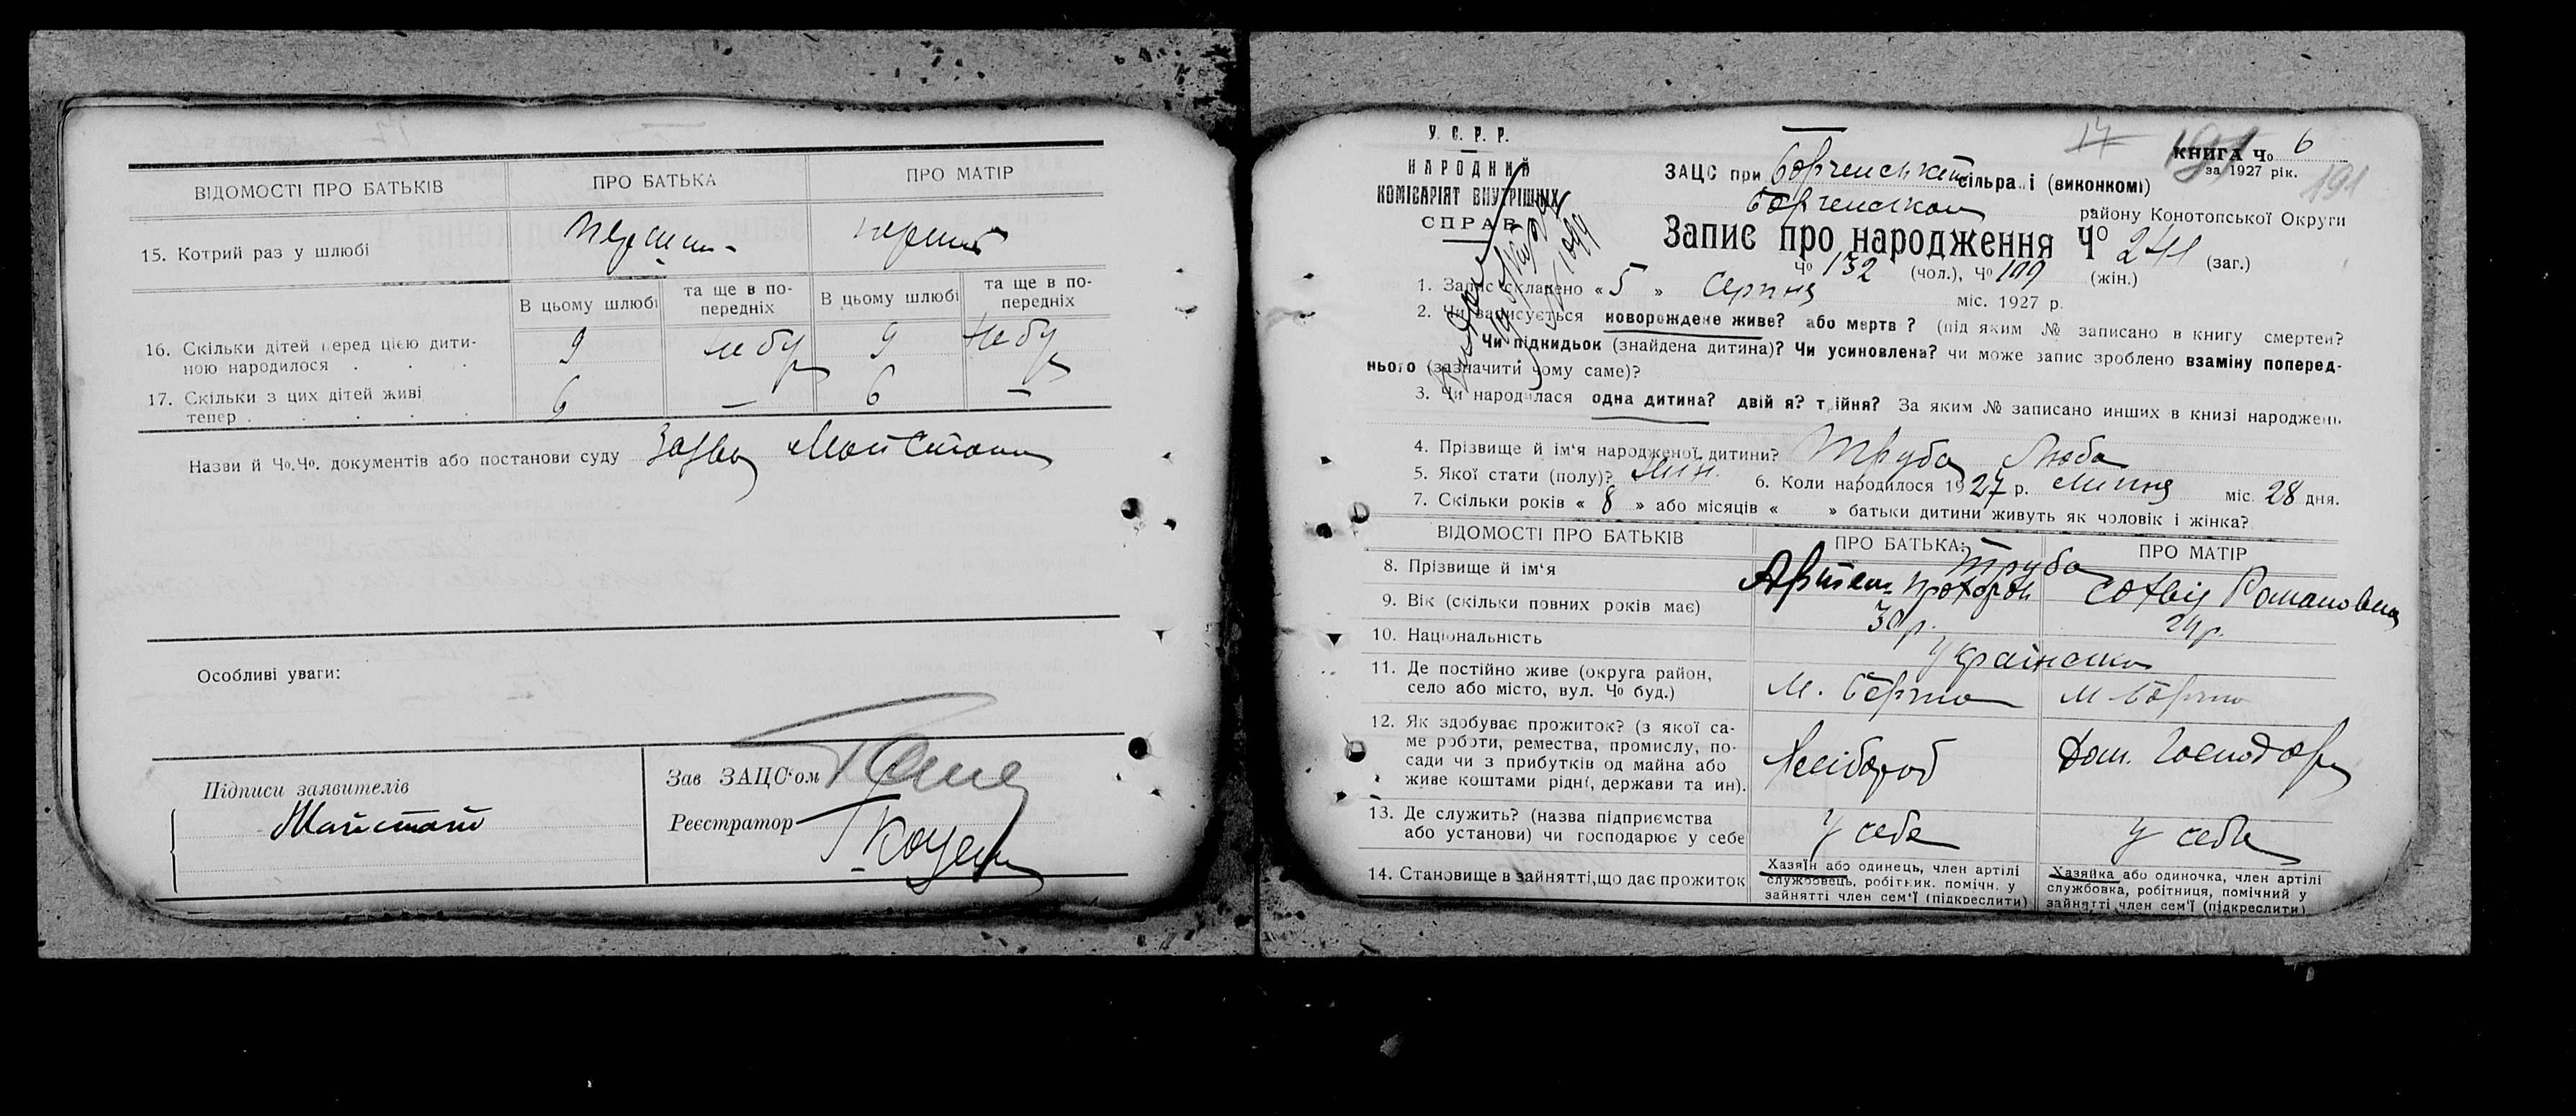 ВІДОМОСТІ ПРО БАТЬКІВ
ПРО БАТЬКА
ПРО МАТІР
15. Котрий раз у шлюбі
В цьому шлюбі
та ще в по-
передніх
В цьому шлюбі
та ще в по-
передніх
16. Скільки дітей перед цією дити-
ною народилося . . .
9
9
17. Скільки з цих дітей живі
тепер . . . . .
6 — 6 —
Назви й Чо.Чо. документів або постанови суду
Особливі уваги:
Підписи заявителів
Зав ЗАЦС‘ом
Реєстратор
У. С. Р. Р.
НАРОДНИЙ
КОМІСАРІЯТ ВНУТРІШНІХ
СПРАВ
17
191
КНИГА Чо 6
за 1927 рік.
191
ЗАЦС при сільра і (виконкомі)
району Конотопської Округи
Запис про народження Чо 241 (заг.)
Чо 132 (чол.), Чо 109 (жін.)
1. Запис складено « 5 » Серпня міс. 1927 р.
2. Чи записується новорождене живе? або мертв ? (під яким № записано в книгу смертей?
Чи підкидьок (знайдена дитина)? Чи усиновлена? чи може запис зроблено взаміну поперед-
нього (зазначити чому саме)?
3. Чи народилася одна дитина? двій я? трійня? За яким № записано инших в книзі народжень
4. Прізвище й ім‘я народженої дитини? Труба Люба
5. Якої стати (полу)? жін. 6. Коли народилося 1927 р. Липня міс. 28 дня.
7. Скільки років « 8 » або місяців « » батьки дитини живуть як чоловік і жінка?
ВІДОМОСТІ ПРО БАТЬКІВ
ПРО БАТЬКА:
ПРО МАТІР
8. Прізвище й ім‘я
Труба
Артем Прохоров
Софія Романовна
9. Вік (скільки повних років має)
30 р.
10. Національність
Українська
11. Де постійно живе (округа район,
село або місто, вул. Чо буд.)
М. Борзна
М Борзна
12. Як здобуває прожиток? (з якої са-
ме роботи, ремества, промислу, по-
сади чи з прибутків од майна або
живе коштами рідні, держави та ин).
Хлібороб
Дом. Господар
13. Де служить? (назва підприємства
або установи) чи господарює у себе
У себе
У себе
14. Становище в зайнятті, що дає прожиток
Хазяїн або одинець, член артілі
службовець, робітник. помічн. у
зайнятті член сем‘ї (підкреслити)
Хазяйка або одиночка, член артілі
службовка, робітниця, помічний у
зайнятті член сем‘ї (підкреслити)